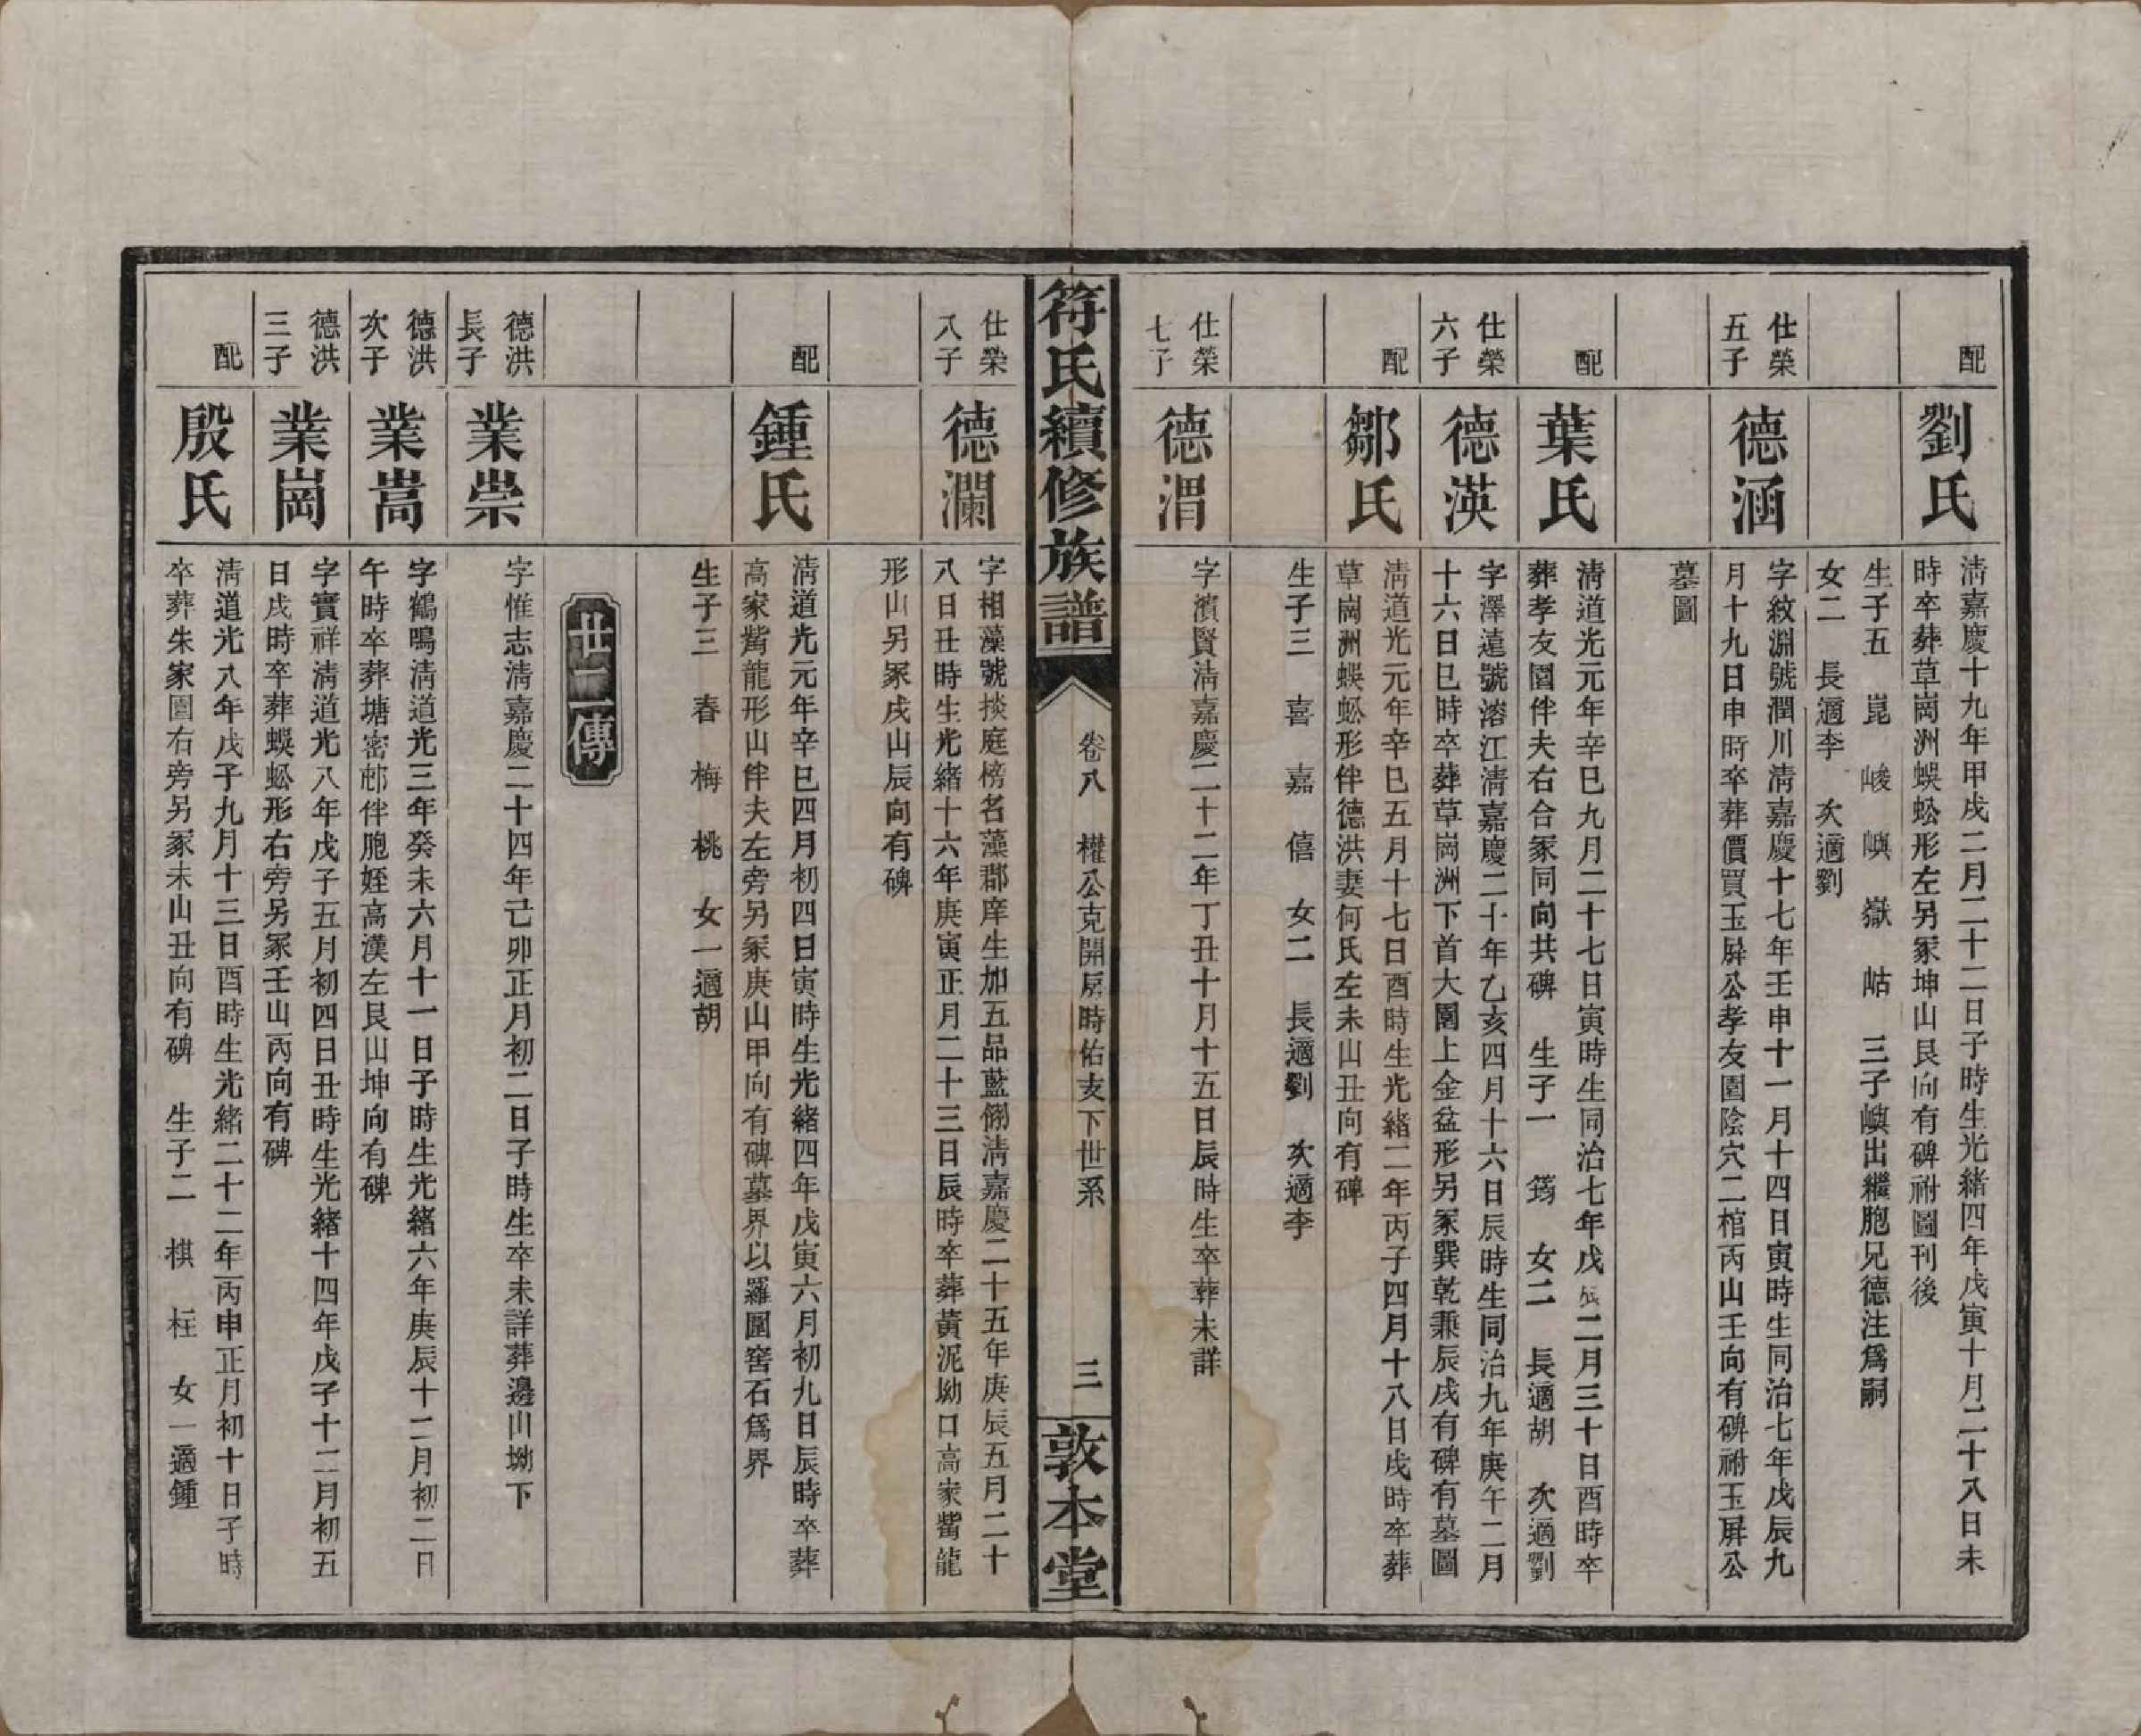 配
劉氏
淸嘉慶十九年甲戌二月二十二日子時生光緒四年戊寅十月二十八日未
時卒葬草崗洲蜈蚣形左另冢坤山艮向有碑祔圖刊後
生子五 崑 峻 嶼 嶽 岵 三子嶼出繼胞兄德注爲嗣
女二 長適李 次適劉
仕榮
五子
德涵
字紋淵號潤川淸嘉慶十七年壬申十一月十四日寅時生同治七年戊辰九
月十九日申時卒葬價買玉屏公孝友園陰穴二棺丙山壬向有碑祔玉屏公
墓圖
配
葉氏
淸道光元年辛巳九月二十七日寅時生同治七年戊辰二月三十日酉時卒
葬孝友園伴夫右合冢同向共碑 生子一 筠 女二 長適胡 次適劉
仕榮
六子
德渶
字澤遠號溶江淸嘉慶二十年乙亥四月十六日辰時生同治九年庚午二月
十六日巳時卒葬草崗洲下首大園上金盆形另冢巽乾兼辰戌有碑有墓圖
配
鄒氏
淸道光元年辛巳五月十七日酉時生光緒二年丙子四月十八日戌時卒葬
草崗洲蜈蚣形伴德洪妻何氏左未山丑向有碑
生子三 喜 嘉 僖 女二 長適劉 次適李
仕榮
七子
德渭
字濱賢淸嘉慶二十二年丁丑十月十五日辰時生卒葬未詳
符氏續修族譜
卷八 權公克開房時佑支下世系
三
敦本堂
仕榮
八子
德瀾
字相藻號掞庭榜名藻郡庠生加五品藍翎淸嘉慶二十五年庚辰五月二十
八日丑時生光緒十六年庚寅正月二十三日辰時卒葬黃泥坳口高家觜龍
形山另冢戌山辰向有碑
配
鍾氏
淸道光元年辛巳四月初四日寅時生光緒四年戊寅六月初九日辰時卒葬
高家觜龍形山伴夫左旁另冢庚山甲向有碑墓界以羅圍窖石爲界
生子三 春 梅 桃 女一適胡
廿二傳
德洪
長子
業崇
字惟志淸嘉慶二十四年己卯正月初二日子時生卒未詳葬邊山坳下
德洪
次子
業嵩
字鶴鳴淸道光三年癸未六月十一日子時生光緒六年庚辰十二月初二日
午時卒葬塘密邨伴胞姪高漢左艮山坤向有碑
德洪
三子
業崗
字實祥淸道光八年戊子五月初四日丑時生光緒十四年戊子十二月初五
日戌時卒葬蜈蚣形右旁另冢壬山丙向有碑
配
殷氏
淸道光八年戊子九月十三日酉時生光緒二十二年丙申正月初十日子時
卒葬朱家園右旁另冢未山丑向有碑 生子二 棋 枉 女一適鍾